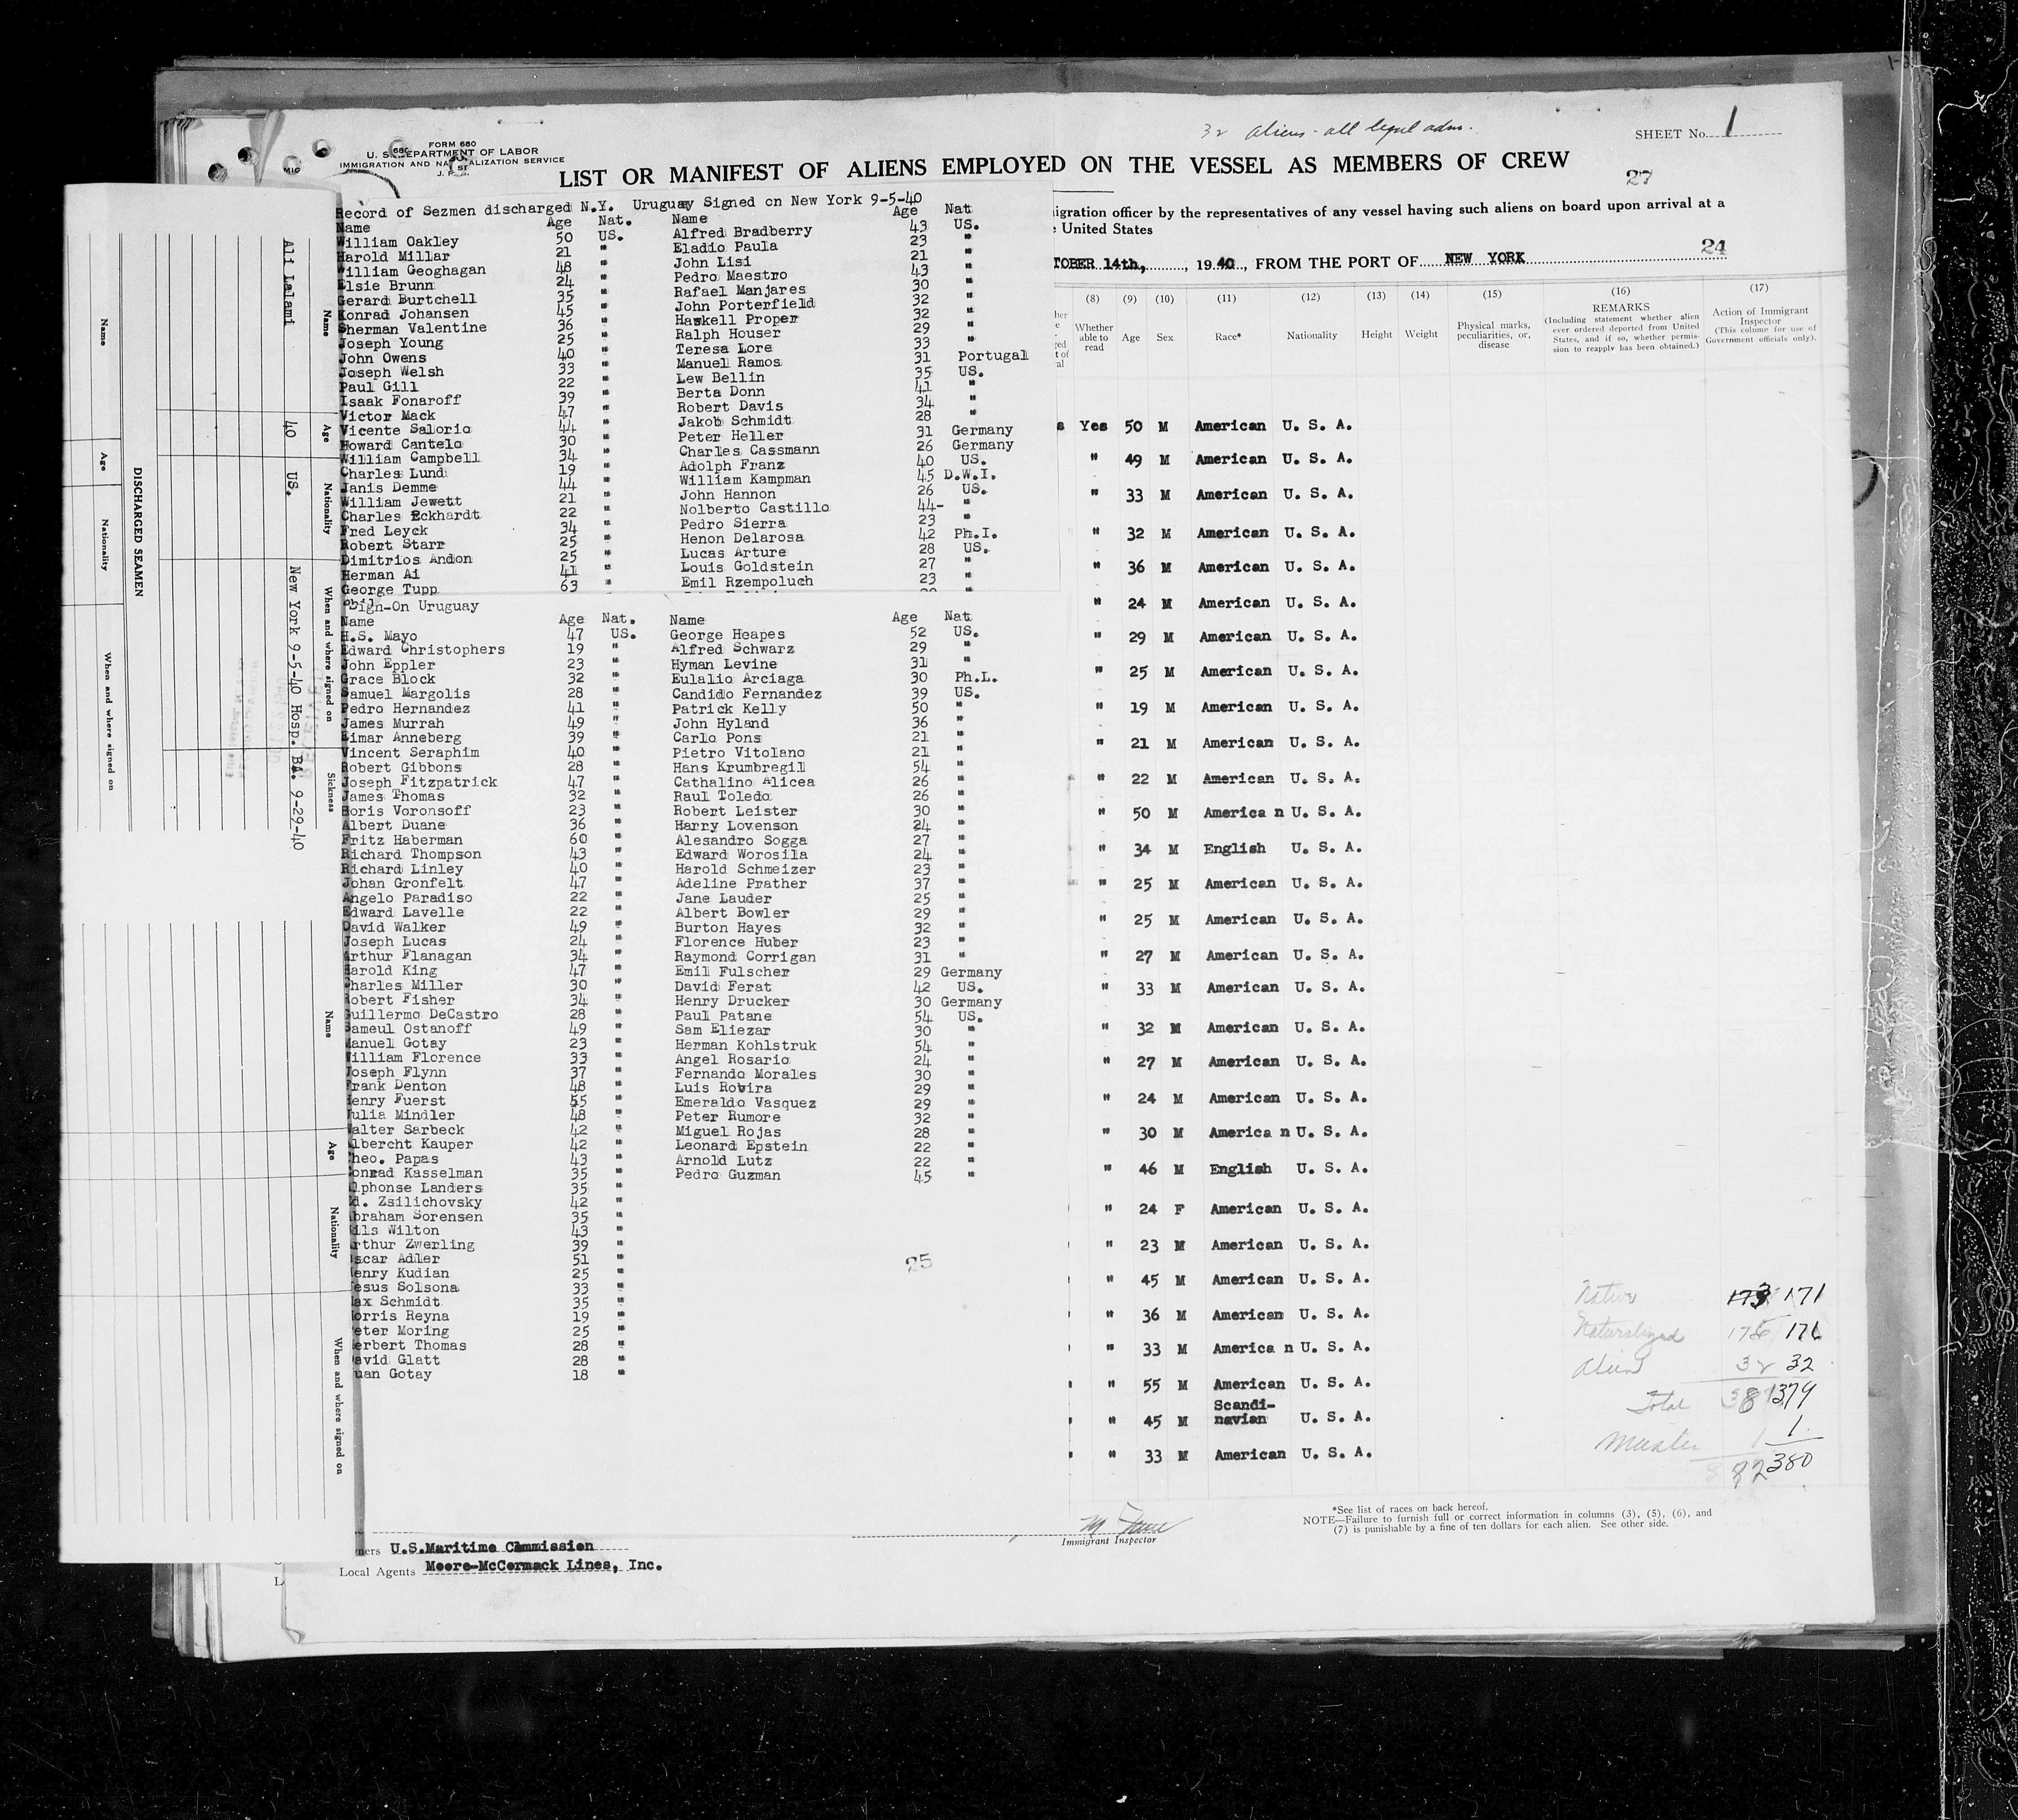 32 aliens - all legal adm.
SHEET No. 1
FORM 680
U. S. DEPARTMENT OF LABOR
IMMIGRATION AND NATURALIZATION SERVICE
LIST OR MANIFEST OF ALIENS EMPLOYED ON THE VESSEL AS MEMBERS OF CREW
27
igration officer by the representatives of any vessel having such aliens on board upon arrival at a
United States
TOBER 14th, , 19 40 , FROM THE PORT OF NEW YORK
24
Record of Sezmen discharged N.Y. Uruguay Signed on New York 9-5-40
Name Age Nat. Name Age Nat
William Oakley 50 US. Alfred Bradberry 43 US.
Harold Millar 21 " Eladio Paula 23 "
William Geoghagan 48 " John Lisi 21 "
Elsie Brunn 24 " Pedro Maestro 43 "
Gerard Burtchell 35 " Rafael Manjares 30 "
Konrad Johansen 45 " John Porterfield 32 "
Sherman Valentine 36 " Haskell Proper 32 "
Joseph Young 25 " Ralph Houser 29 "
John Owens 40 " Teresa Lore 33 "
Joseph Welsh 33 " Manuel Ramos 31 Portugal
Paul Gill 22 " Lew Bellin 35 US.
Isaak Fonaroff 39 " Berta Donn 41 "
Victor Mack 47 " Robert Davis 34 "
Vicente Salorio 44 " Jakob Schmidt 28 "
Howard Cantelo 30 " Peter Heller 31 Germany
William Campbell 34 " Charles Cassmann 26 Germany
Charles Lund 19 " Adolph Franz 40 US.
Janis Demme 44 " William Kampman 45 D.W.I.
William Jewett 21 " John Hannon 26 US.
Charles Eckhardt 22 " Nolberto Castillo 44- "
Fred Leyck 34 " Pedro Sierra 23 "
Robert Starr 25 " Henon Delarosa 42 Ph.I.
Dimitrios Andon 25 " Lucas Arture 28 US.
Herman Ai 41 " Louis Goldstein 27 "
George Tupp 63 " Emil Rzempoluch 23 "
Sign-On Uruguay
Name Age Nat. Name Age Nat
H.S. Mayo 47 US. George Heapes 52 US.
Edward Christophers 19 " Alfred Schwarz 29 "
John Eppler 23 " Hyman Levine 31 "
Grace Block 32 " Eulalio Arciaga 30 Ph.L.
Samuel Margolis 28 " Candido Fernandez 39 US.
Pedro Hernandez 41 " Patrick Kelly 50 "
James Murrah 49 " John Hyland 36 "
Eimar Anneberg 39 " Carlo Pons 21 "
Vincent Seraphim 40 " Pietro Vitolano 21 "
Robert Gibbons 28 " Hans Krumbregil 54 "
Joseph Fitzpatrick 47 " Cathalino Alicea 26 "
James Thomas 32 " Raul Toledo 26 "
Boris Voronsoff 23 " Robert Leister 30 "
Albert Duane 36 " Harry Lovenson 24 "
Fritz Haberman 60 " Alesandro Sogga 27 "
Richard Thompson 43 " Edward Worosila 24 "
Richard Linley 40 " Harold Schmeizer 23 "
Johan Gronfelt 47 " Adeline Prather 37 "
Angelo Paradiso 22 " Jane Lauder 25 "
Edward Lavelle 22 " Albert Bowler 29 "
David Walker 49 " Burton Hayes 32 "
Joseph Lucas 24 " Florence Huber 23 "
Arthur Flanagan 34 " Raymond Corrigan 31 "
Harold King 47 " Emil Fulscher 29 Germany
Charles Miller 30 " David Ferat 42 US.
Robert Fisher 34 " Henry Drucker 30 Germany
Guillermo DeCastro 28 " Paul Patane 54 US.
Sameul Ostanoff 49 " Sam Eliezar 30 "
Manuel Gotay 23 " Herman Kohlstruk 54 "
William Florence 33 " Angel Rosario 24 "
Joseph Flynn 37 " Fernando Morales 30 "
Frank Denton 48 " Luis Rovira 29 "
Henry Fuerst 55 " Emeraldo Vasquez 29 "
Julia Mindler 48 " Peter Rumore 32 "
Walter Sarbeck 42 " Miguel Rojas 28 "
Albercht Kauper 42 " Leonard Epstein 22 "
Theo. Papas 43 " Arnold Lutz 22 "
Conrad Kasselman 35 " Pedro Guzman 45 "
Alphonse Landers 35 "
Ed. Zsilichovsky 42 "
Abraham Sorensen 35 "
Nils Wilton 43 "
Arthur Zwerling 39 "
Oscar Adler 51 "
Henry Kudian 25 "
Jesus Solsona 33 "
Max Schmidt 35 "
Morris Reyna 19 "
Peter Moring 25 "
Herbert Thomas 28 "
David Glatt 28 "
Juan Gotay 18 "
25
(8) (9) (10) (11) (12) (13) (14) (15) (16) (17)
Whether able to read Age Sex Race* Nationality Height Weight Physical marks, peculiarities, or, disease
REMARKS
(Including statement whether alien ever ordered deported from United States, and if so, whether permission to reapply has been obtained.)
Action of Immigrant Inspector
(This column for use of Government officials only).
Yes 50 M American U. S. A.
" 49 M American U. S. A.
" 33 M American U. S. A.
" 32 M American U. S. A.
" 36 M American U. S. A.
" 24 M American U. S. A.
" 29 M American U. S. A.
" 25 M American U. S. A.
" 19 M American U. S. A.
" 21 M American U. S. A.
" 22 M American U. S. A.
" 50 M America n U. S. A.
" 34 M English U. S. A.
" 25 M American U. S. A.
" 25 M American U. S. A.
" 27 M American U. S. A.
" 33 M American U. S. A.
" 32 M American U. S. A.
" 27 M American U. S. A.
" 24 M American U. S. A.
" 30 M America n U. S. A.
" 46 M English U. S. A.
" 24 F American U. S. A.
" 23 M American U. S. A.
" 45 M American U. S. A.
" 36 M American U. S. A.
" 33 M America n U. S. A.
" 55 M American U. S. A.
" 45 M Scandi-navian U. S. A.
" 33 M American U. S. A.
Native 173 171
Naturalized 176 176
Alien 32 32
Total 381 379
Master 1 1
382 380
*See list of races on back hereof.
NOTE—Failure to furnish full or correct information in columns (3), (5), (6), and
(7) is punishable by a fine of ten dollars for each alien. See other side.
Immigrant Inspector
ners U.S.Maritime Commission
Local Agents Moore-McCormack Lines, Inc.
DISCHARGED SEAMEN
Name Age Nationality When and where signed on
Name Age Nationality When and where signed on Sickness
Ali Lalami 40 US. New York 9-5-40 Hosp. BA. 9-29-40
Name Age Nationality When and where signed on